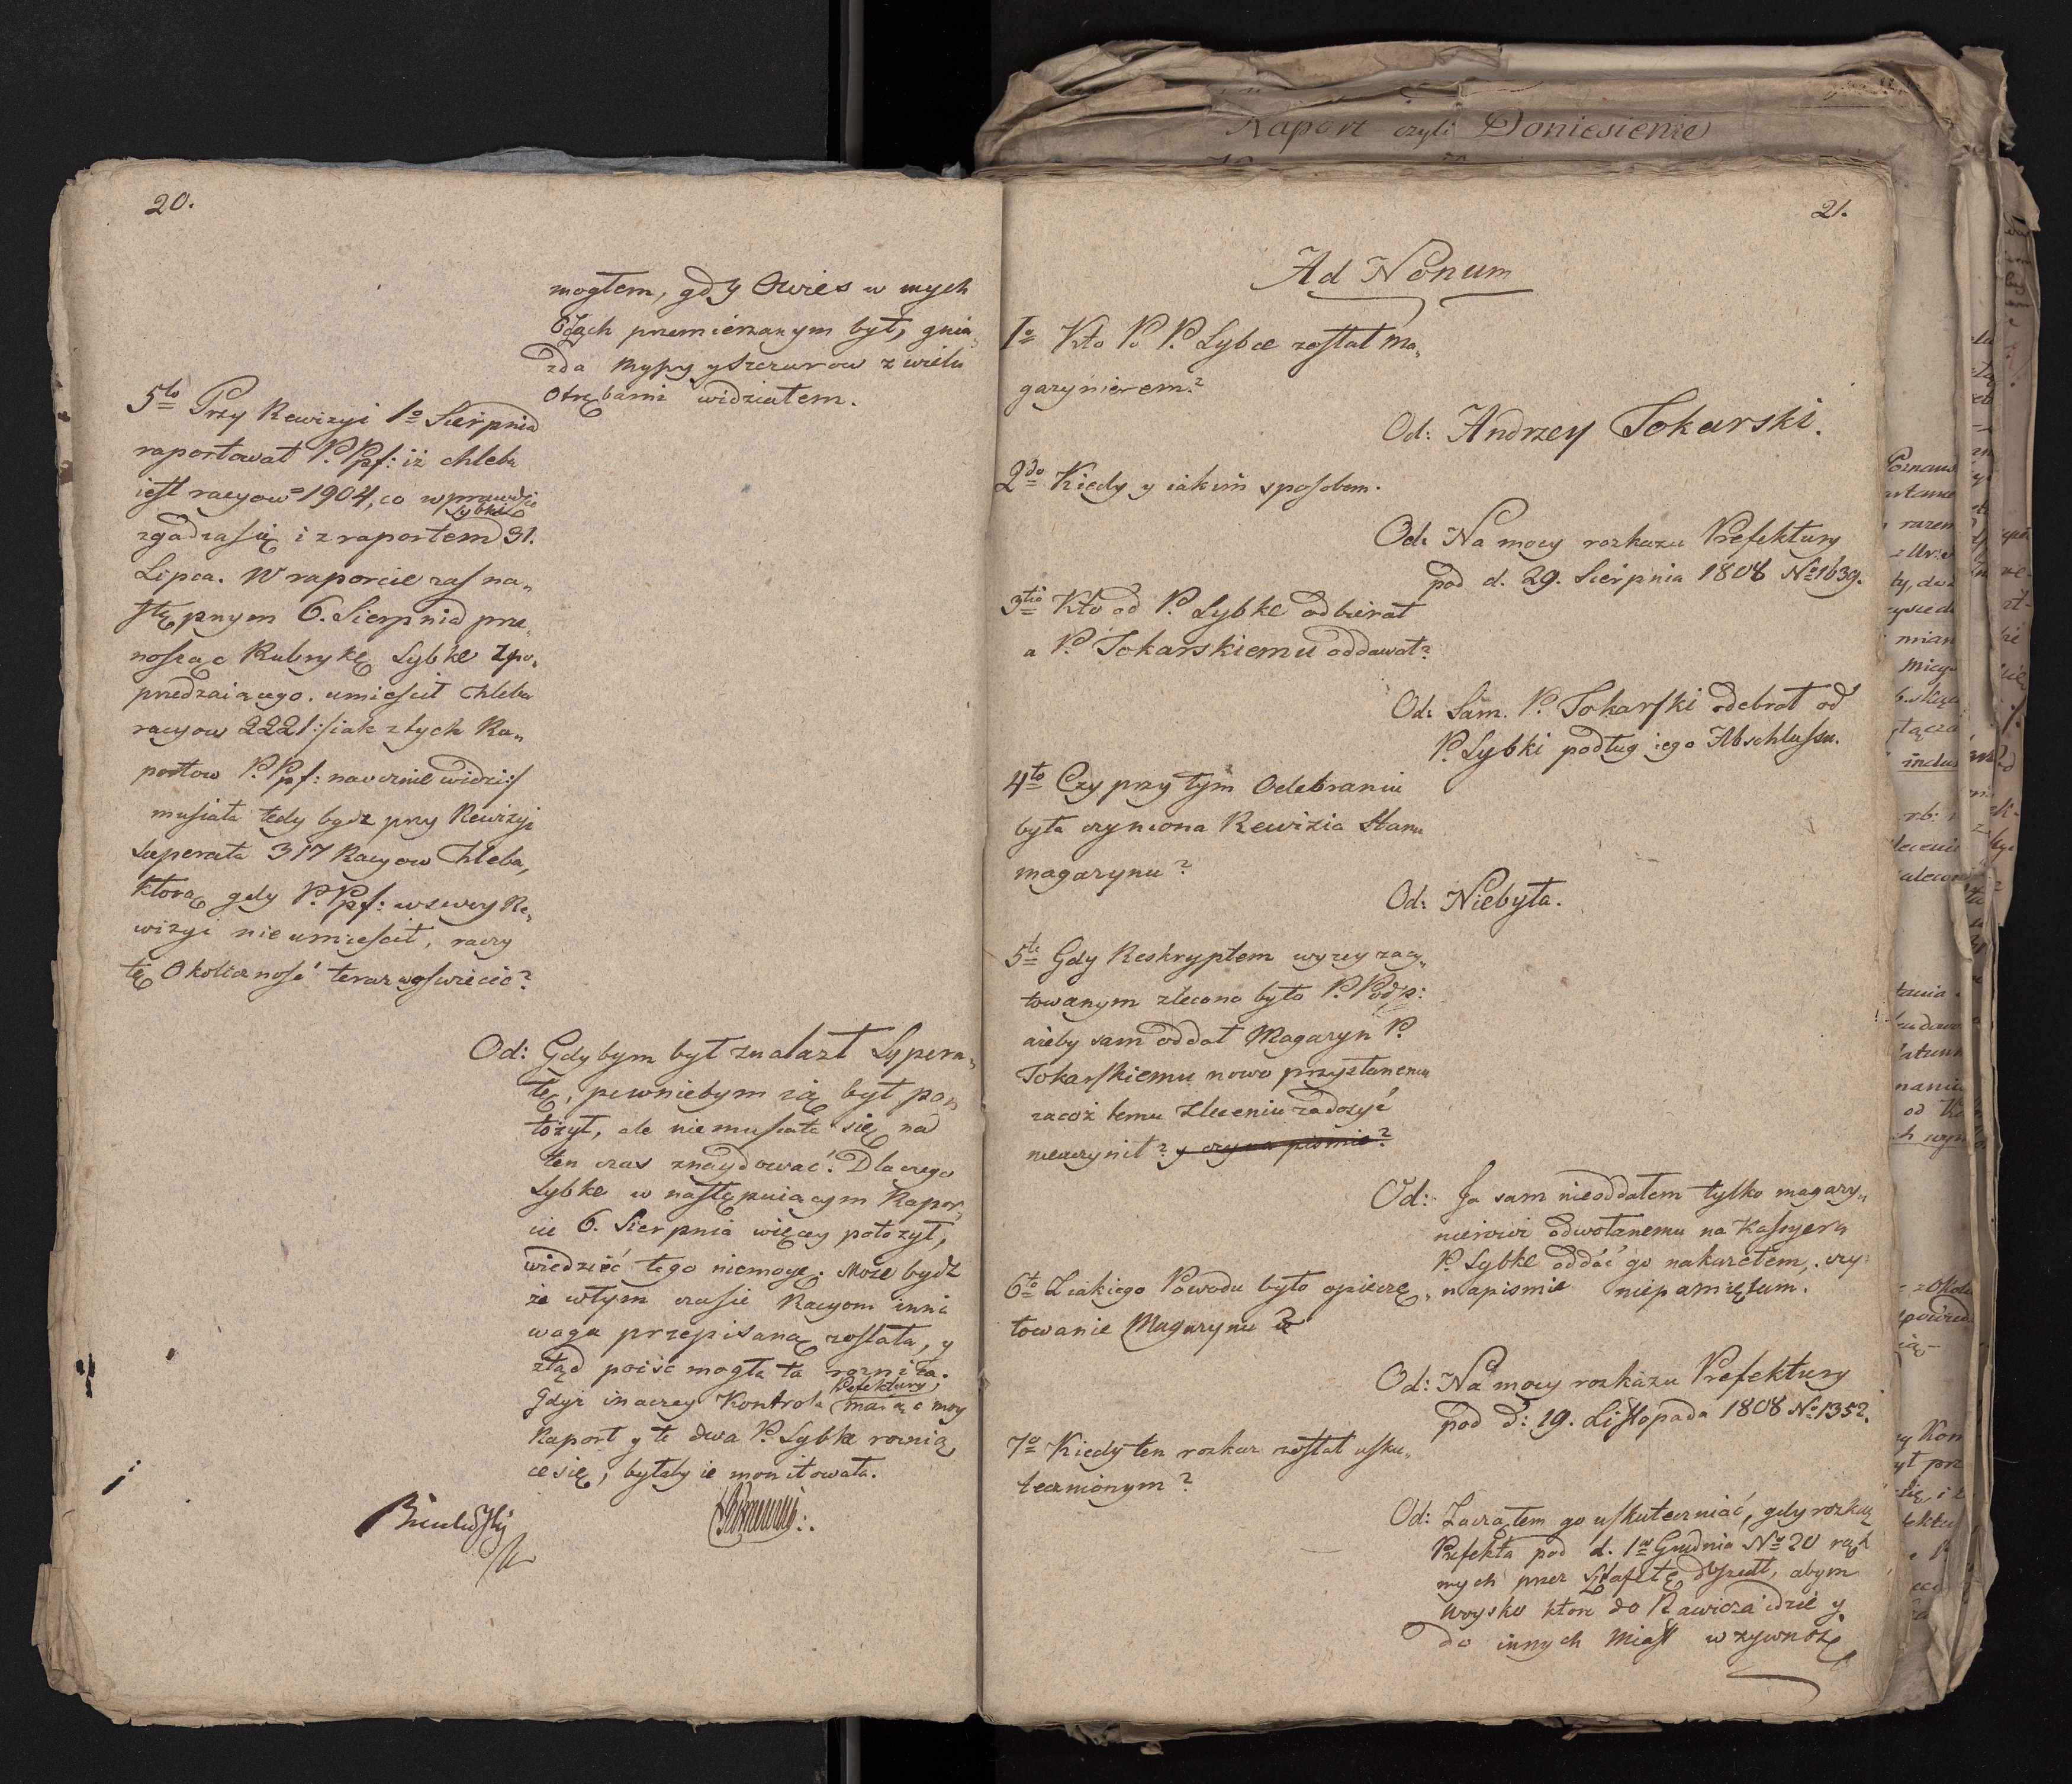 20.
mogłem, gdy Owies w mych
Oczach przemierzanym był, gnia„
zda Myszy y Szczurow z wielu
Otrębami widziałem.
5to Przy Rewizyi 1o Sierpnia
raportował P. Ppf: iż chleba
iest racyow 1904, co wprawdzie
zgadza się i z raportem Lybke 31.
Lipca. W raporcie zaś na„
stępnym 6. Sierpnia prze„
nosząc Rubrykę Lybke z po„
przedzaiącego umieścił chleba
racyow 2221 :/iak z tych Ra„
portow P. Ppf: naocznie widzi:/
musiała tedy bydz przy Rewizyi
Superata 317 Racyow Chleba,
ktorą gdy P. Ppf: w swey Re„
wizyi nie umieścił, raczy
tę Okoliczność teraz wyświecić?
Od: Gdybym był znalazł Supera„
tę, pewniebym ią był po„
łożył, ale niemusiała się na
ten czas znaydować. Dlaczego
Lybke w następuiącym Rapor„
cie 6. Sierpnia więcey położył,
wiedzieć tego niemogę. Może bydz
że w tym czasie Racyom inna
waga przepisaną została, y
ztąd poiść mogła ta roznica.
Gdyż inaczey Kontrola Prefektury, maiąc moy
Raport y te dwa P. Lybke rownią
ce się, byłaby ie monitowała.
21.
Ad Nonum
1o Kto Po P. Lybce został ma„
gazynierem?
Od: Andrzey Tokarski.
2do Kiedy y iakim sposobem.
Od: Na mocy rozkazu Prefektury
pod d. 29. Sierpnia 1808 No 1639.
3tio Kto od P. Lybke odbierał
a P. Tokarskiemu oddawał?
Od: Sam P. Tokarski odebrał od
P. Lybki podług iego Abschlussu.
4to Czy przy tym Odebraniu
była czyniona Rewizia Stanu
magazynu?
Od: Niebyła.
5to Gdy Reskryptem wyzey zacy„
towanym zlecono było P. Podp:
ażeby sam oddał Magazyn P.
Tokarskiemu nowo przysłanemu
zacoż temu Zleceniu zadosyć
nieuczynił? y czy na piśmie?
Od: Ja sam nieoddałem tylko magazy„
nierowi odwołanemu na Kassyera
P. Lybke oddać go nakazałem, czy
na pismie niepamiętam.
6to Z iakiego Powodu było opieczę„
towanie Magazynu?
Od: Na mocy rozkazu Prefektury
pod d: 19. Listopada 1808 No 1352.
7o Kiedy ten rozkaz został usku„
tecznionym?
Od: Zacząłem go uskuteczniać, gdy rozkaz
Prefekta pod d. 1go Grudnia No 20 rąk
mych przez Sztafetę doszedł, abym
Woysko ktore do Rawicza idzie y
do innych Miast w zywnosc
Raport czyli Doniesienie